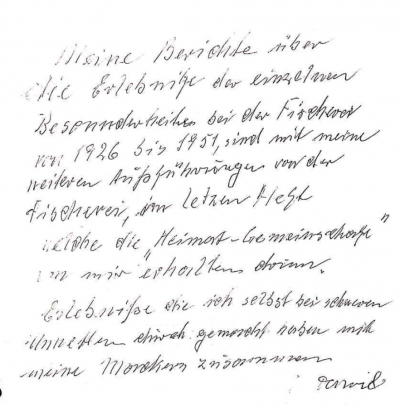 Meine Berichte über
die Erlebniße der einzelnen
Besonderheiten bei der Fischerei
von 1926 bis 1951, sind mit meine
weiteren Aufführungen von der
Fischerei, im letzen Heft
welche die "Heimat-Gemeinschafe"
von mir erhalten
Erlebniße die ich selbst bei schweren
Unwettern durch gemacht haben mit
meine zusammen